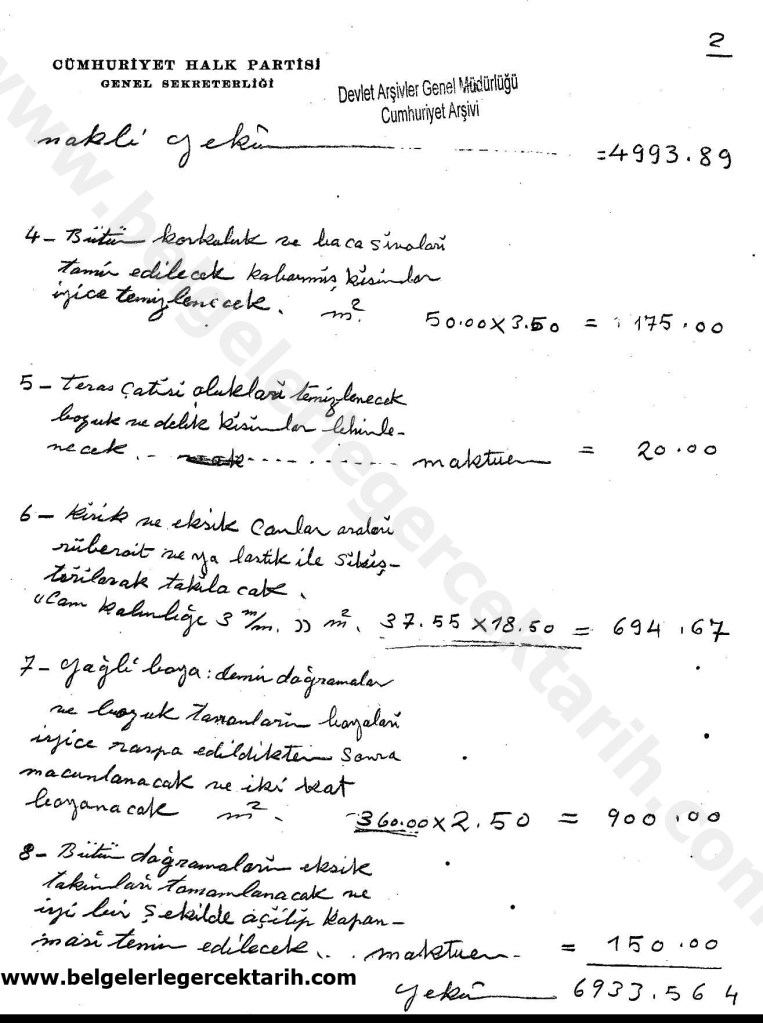 2
CÜMHURİYET HALK PARTİSİ
GENEL SEKRETERLİĞİ
Devlet Arşivler Genel Müdürlüğü
Cumhuriyet Arşivi
nakli yekûn =4993.89
4- Bütün korkuluk ve baca sıvaları
tamir edilecek kabarmış kısımlar
iyice temizlenecek. m² 50.00x3.50 = 175.00
5- Teras çatısı olukları temizlenecek
bozuk ve delik kısımlar lehimle-
necek.- maktuen = 20.00
6- Kırık ve eksik Camlar araları
rüberoit veya lastik ile sıkış-
tırılarak takılacak.
"Cam kalınlığı 3 m/m." m². 37.55x18.50 = 694.67
7- Yağlı boya: demir doğramalar
ve bozuk tavanların boyaları
iyice raspa edildikten Sonra
macunlanacak ve iki kat
boyanacak m². 360.00x2.50 = 900.00
8- Bütün doğramaların eksik
takımları tamamlanacak ve
iyi bir şekilde açılıp kapan-
ması temin edilecek... maktuen- = 150.00
yekûn 6933.564
www.belgelerlegercektarih.com
www.belgelerlegercektarih.com